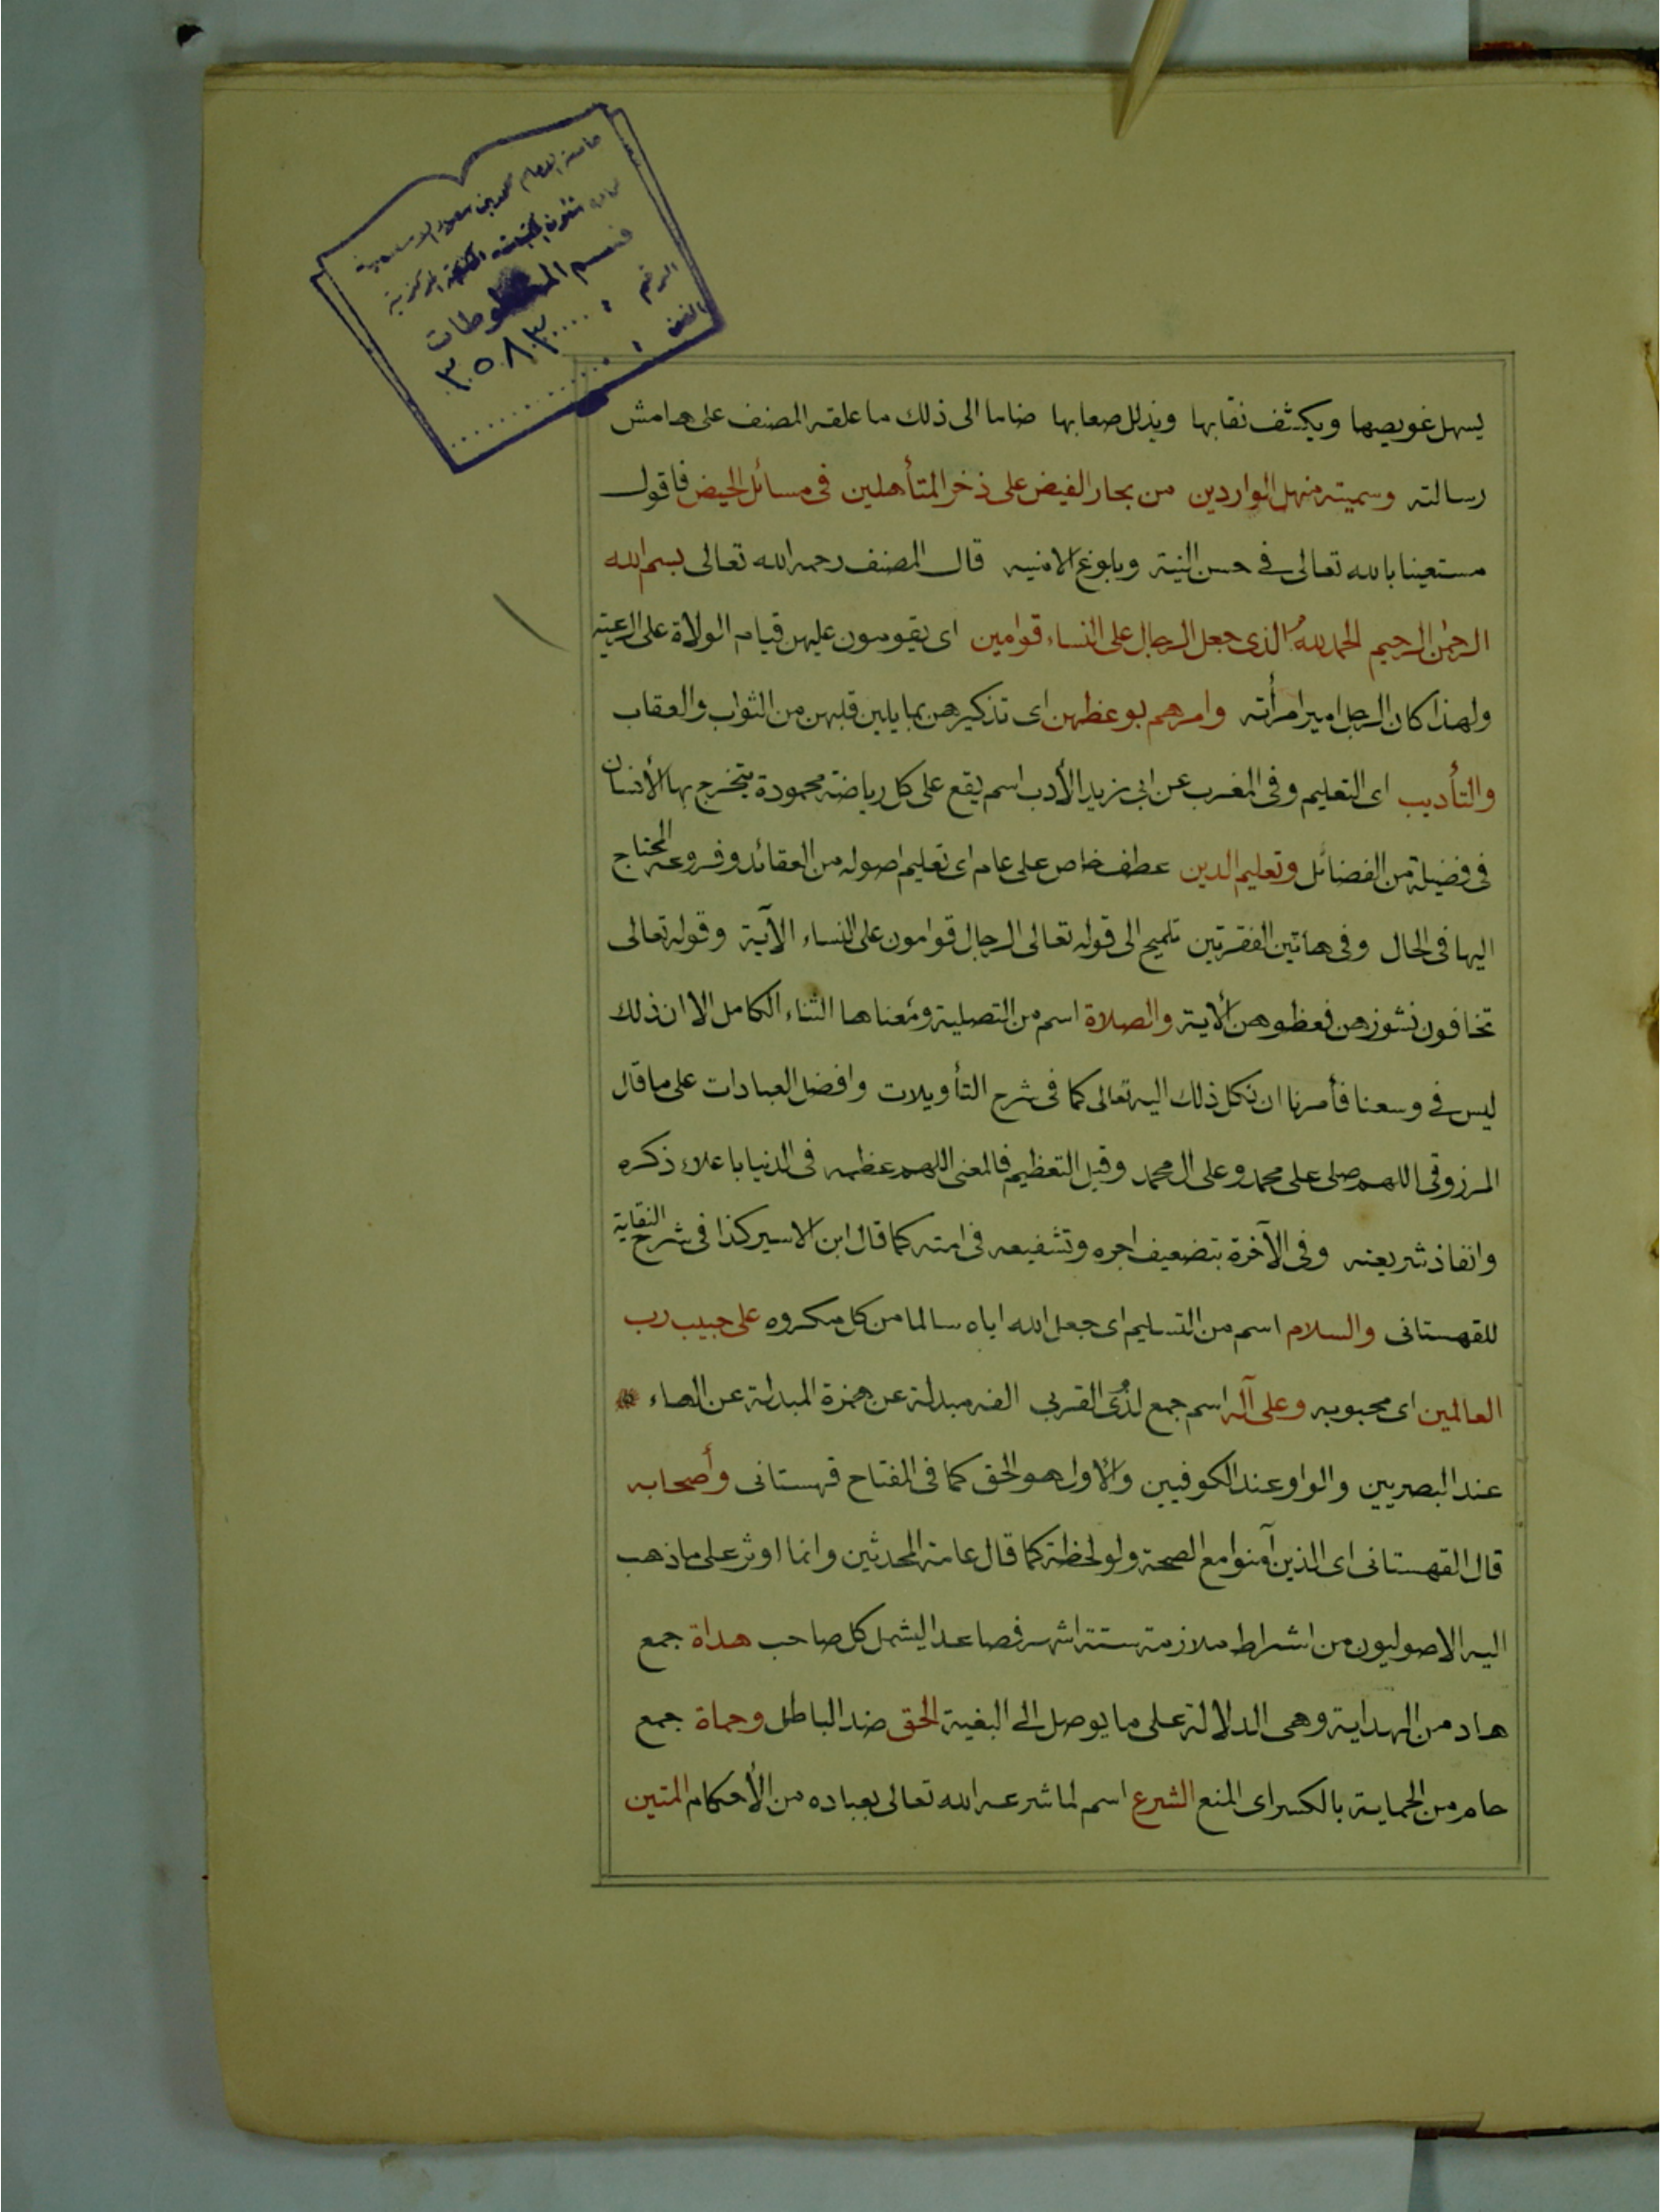 جامعة الامام محمد بن سعود الاسلامية
شئون المكتبات المكتبة المركزية
قسم المخطوطات
الرقم : ٣٥٨٣
الفن :
يسهل غويصها ويكشف نقابها ويذلل صعابها ضاما الى ذلك ما علقه المصنف على هامش
رسالته وسميته منهل الواردين من بحار الفيض على ذخر المتأهلين فى مسائل الحيض فاقول
مستعينا بالله تعالى فى حسن النية وبلوغ الامنيه قال المصنف رحمه الله تعالى بسم الله
الرحمن الرحيم الحمد لله الذى جعل الرجال على النساء قوامين اى يقومون عليهن قيام الولاة على الرعية
ولهذا كان الرجل امير امرأته وامرهم بوعظهن اى تذكيرهن بما يلين قلبهن من الثواب والعقاب
والتأديب اى التعليم وفى المغرب عن ابى زيد الأدب اسم يقع على كل رياضة محمودة يتخرج بها الأنسان
فى فضيلة من الفضائل وتعليم الدين عطف خاص على عام اى تعليم اصوله من العقائد وفروعه المحتاج
اليها فى الحال وفى هاتين الفقرتين تلميح الى قوله تعالى الرجال قوامون على النساء الآية وقوله تعالى
تخافون نشوزهن فعظوهن الاية والصلاة اسم من التصلية ومعناها الثناء الكامل الا ان ذلك
ليس فى وسعنا فأمرنا ان نكل ذلك اليه تعالى كما فى شرح التأويلات وافضل العبادات على ما قال
المرزوقى اللهم صلى على محمد وعلى ال محمد وقيل التعظيم فالمعنى اللهم عظمه فى الدنيا باعلاء ذكره
وانفاذ شريعته وفى الآخرة بتضعيف اجره وتشفيعه فى امته كما قال ابن الاسير كذا فى شرح النقاية
للقهستانى والسلام اسم من التسليم اى جعل الله اياه سالما من كل مكروه على حبيب رب
العالمين اى محبوبه وعلى آله اسم جمع لذى القربى الفه مبدلة عن همزة المبدلة عن الهاء
عند البصريين والواو عند الكوفيين والاول هو الحق كما فى المفتاح قهستانى وأصحابه
قال القهستانى اى الذين آمنوا مع الصحة ولو لحظة كما قال عامة المحدثين وانما اوثر على ما ذهب
اليه الاصوليون من اشراط ملازمة ستة اشهر فصاعدا ليشمل كل صاحب هداة جمع
هاد من الهداية وهى الدلالة على ما يوصل الى البغية الحق ضد الباطل وحماة جمع
حام من الحماية بالكسر اى المنع الشرع اسم لما شرعه الله تعالى بعباده من الأحكام المتين